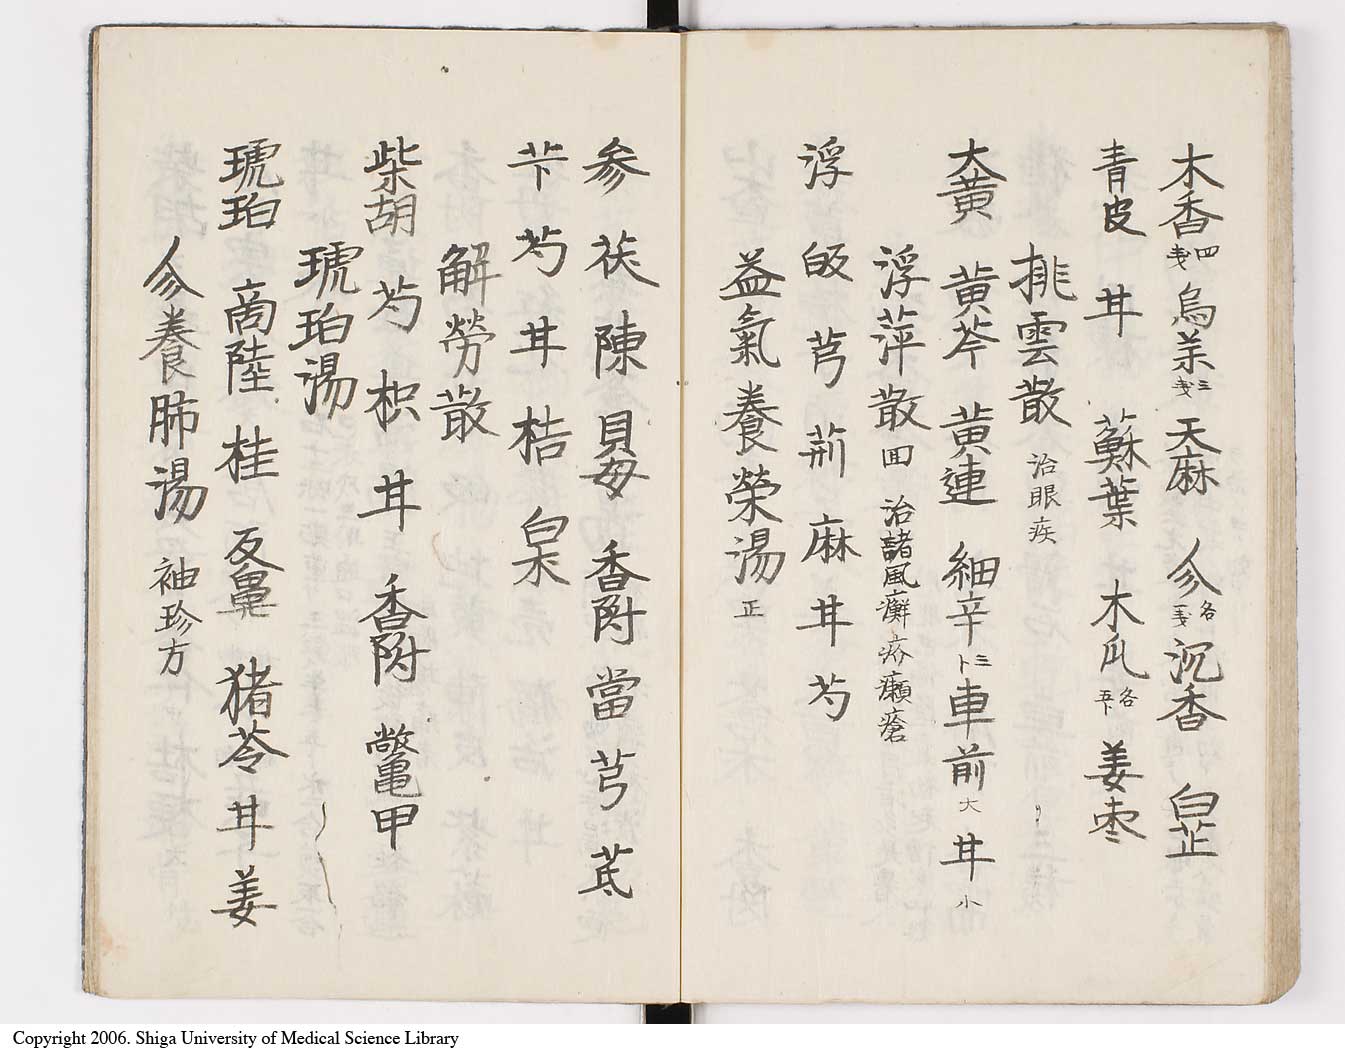 木香四戔烏茱三戔天麻 㕘各一戔沉香 白芷
青皮 甘 蘇葉 木瓜各五卜 姜棗
排雲散 治眼疾
大黄 黄芩 黄連 細辛三卜車前大 甘小
浮萍散 回 治諸風癬疥癩瘡
浮 皈 芎 荊 麻 甘 芍
益氣養榮湯 正
参 茯 陳 貝母 香附 當 芎 芪
芐 芍 甘 桔 白朮
解勞散
柴胡 芍 枳 甘 香附 鱉甲
琥珀湯
琥珀 商陸 桂 反鼻 猪苓 甘 姜
㕘養肺湯 袖珍方
Copyright 2006. Shiga University of Medical Science Library